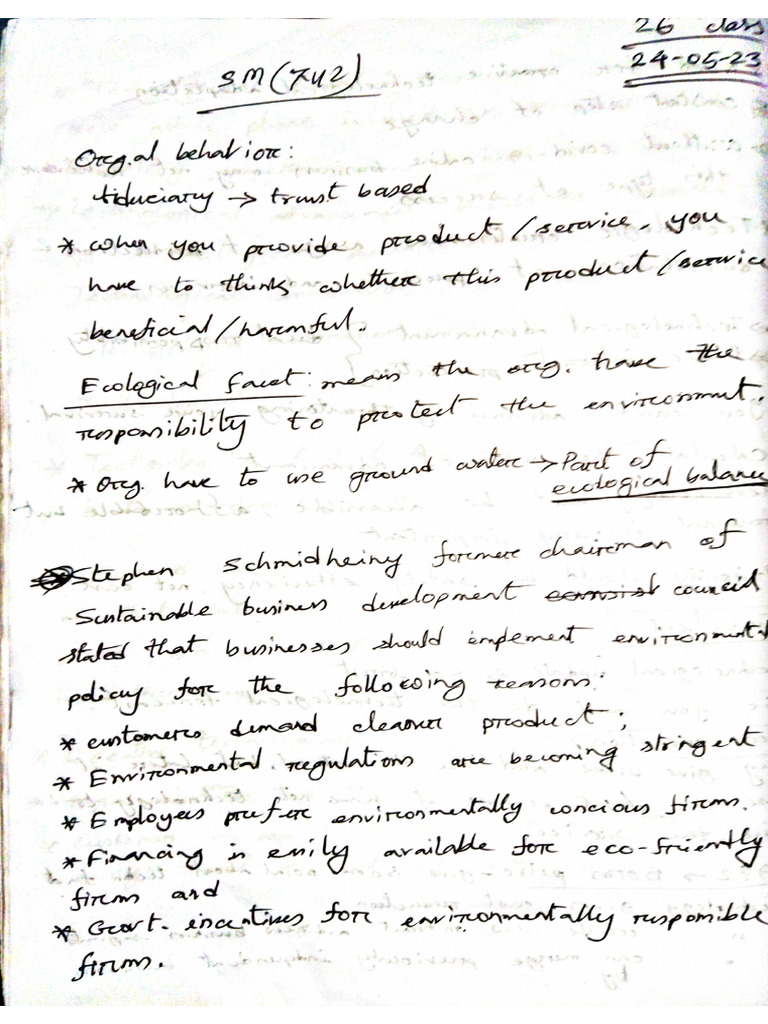 26 class
24-05-23
SM (742)
Org.al behavior:
fiduciary → trust based
* When you provide product/service, you
have to thinks whether this product/service
beneficial/harmful.
Ecological facet: means the org. have the
responsibility to protect the environment.
* Org. have to use ground water → Part of
ecological balance
Stephen Schmidheiny former chairman of
Sustainable business development council
stated that businesses should implement environmental
policy for the following reasons:
* customers demand cleaner product;
* Environmental regulations are becoming stringent
* Employees prefer environmentally concious firms.
* Financing is easily available for eco-friendly
firms and
* Govt. incentives for environmentally responsible
firms.